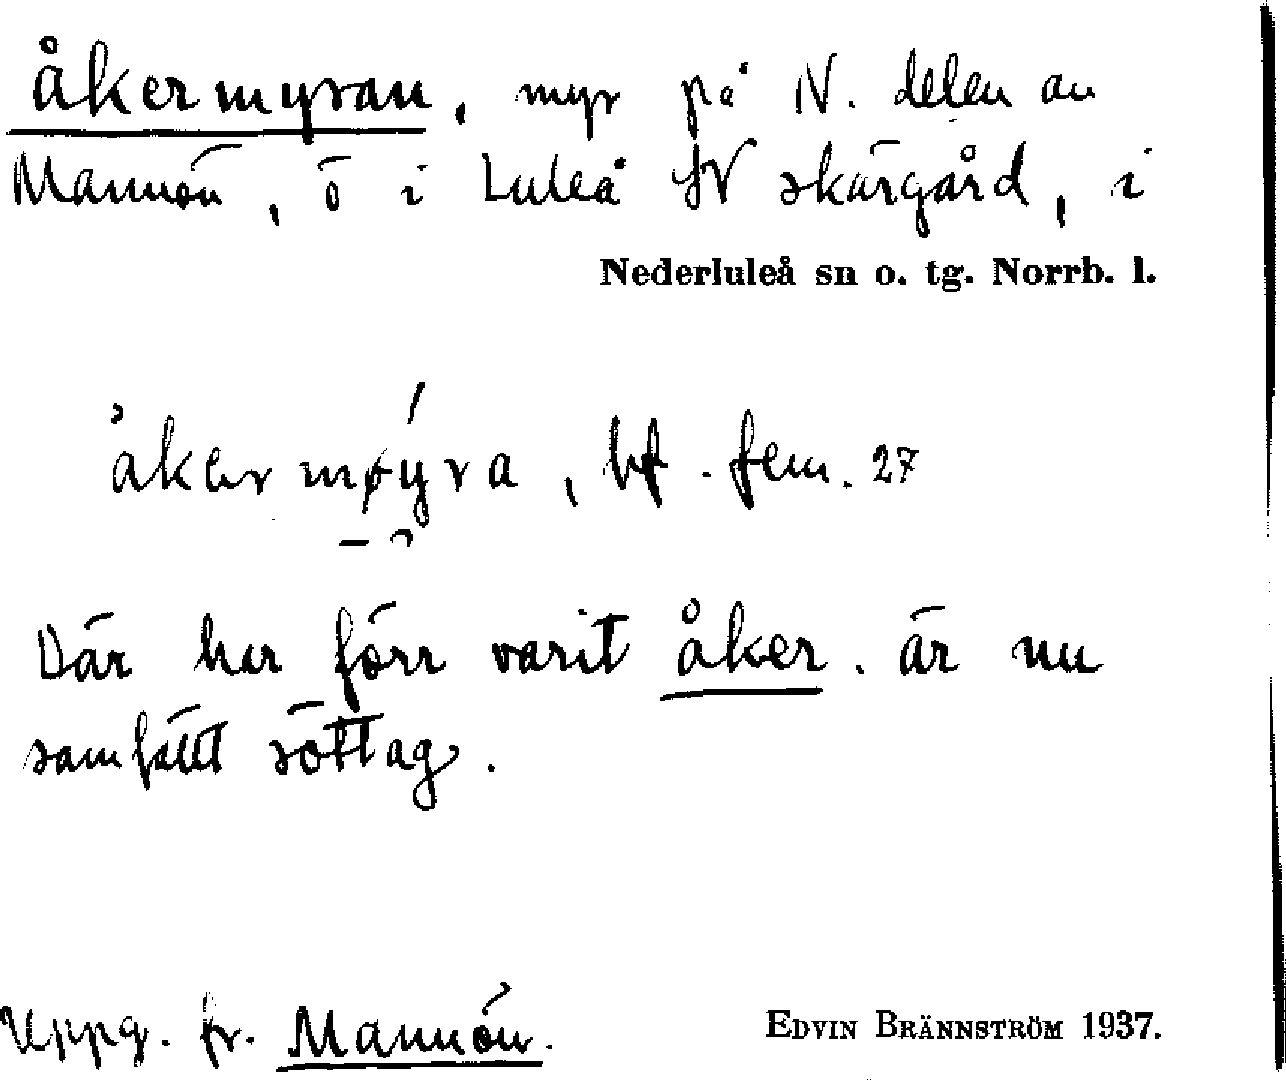 åkermyran, myr på N. delen av
Mannön, ö i Luleå SV skärgård, i
Nederluleå sn o. tg. Norrb. l.
åker møyra, bf. fem. 27
Där har förr varit åker. är nu
samfällt slåttag.
Uppg. fr. Mannön.
EDVIN BRÄNNSTRÖM 1937.